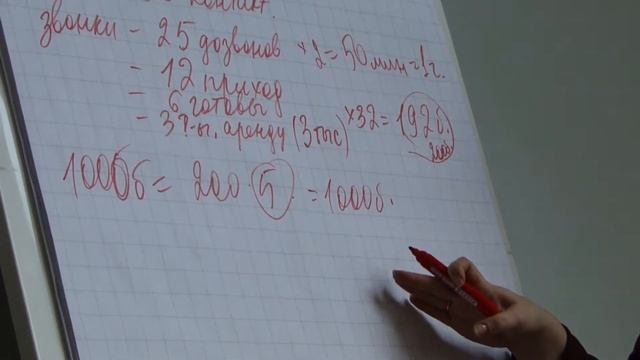 контакт.
звонки - 25 дозвонов × 2 = 50 мин = 1 г.
- 12 приход
- 6 готовы
- 3 ?-ы, аренду (3 тыс) × 32 = 192б.
200б
1000б = 200 · 5 = 1000б.